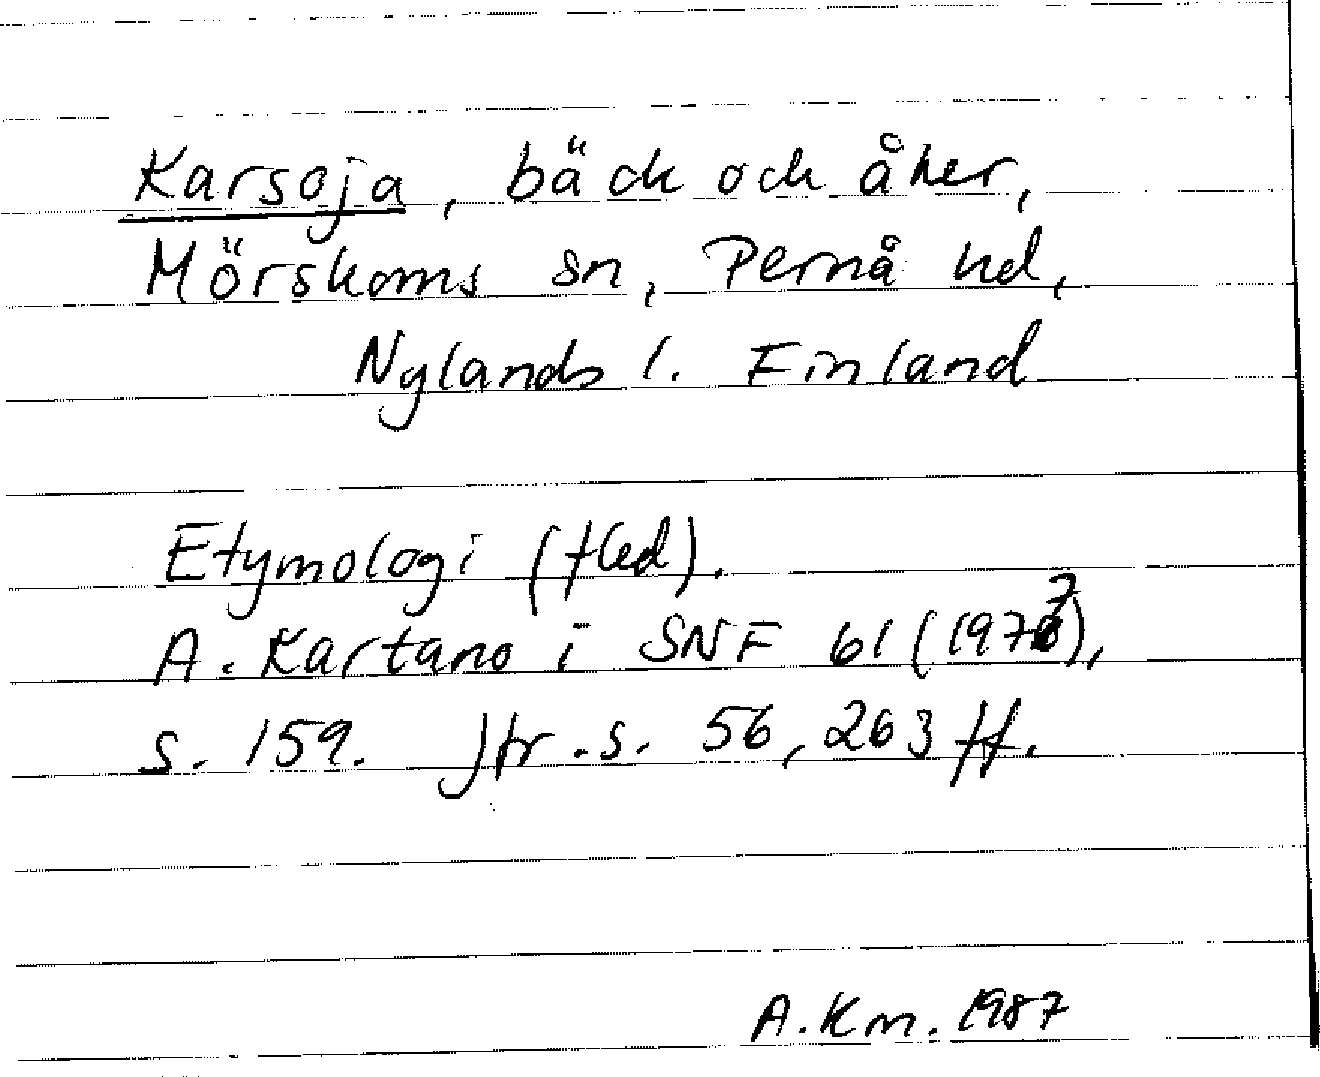 Karsoja, bäck och åker,
Mörskoms sn, Pernå hd,
Nylands l. Finland
Etymologi (fled).
A. Kartano i SNF 61 (1977),
s. 159. Jfr. s. 56, 263 ff.
A. Km. 1987